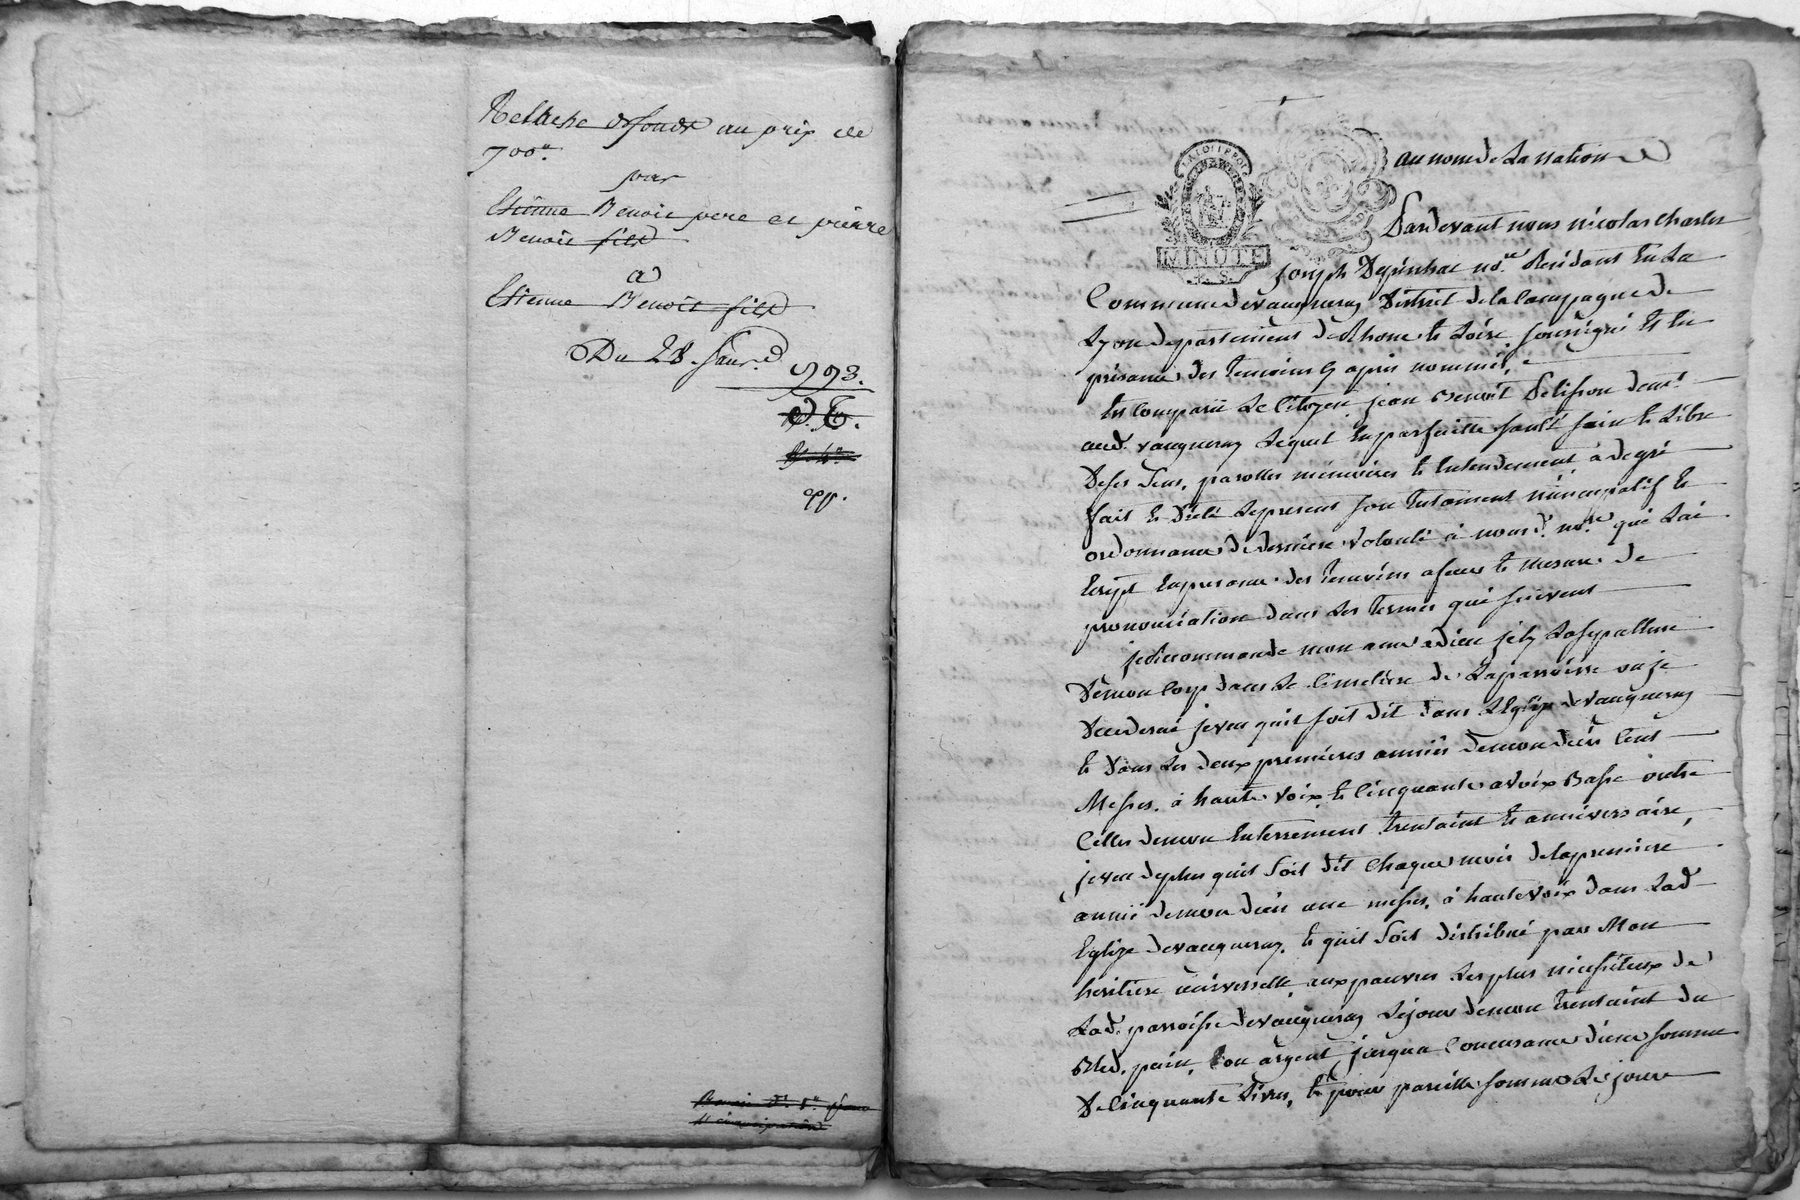 Relache de fonds au prix de
700#.
par
Etienne Benoit pere et pierre
Benoit fils
a
Etienne Benoit fils
Du 28. Janv.
1793.
LA LOI
MINUTE
4 S.
au nom de La Nation
Pardevant nous Nicolas Charles
Joseph no.re Residant En La
Commune de vaugneray District de la Campagne de
Lyon departement de Rhone Et Loire, soussigné Et En
presance des temoins cy apres nommés,
Est Comparu Le Citoyen jean Benoit Delisson demt.
aud. vaugneray Lequel En parfaitte santé sain Et Libre
De ses sens, parolles memoires Et Entendement, à de gré
fait Et dicté Le present son Testament nuncupatif Et
ordonnance de derniere volonté à nousd. no.re qui L'ai
Ecrit En presance des temoins a fur Et mesure de
prononciation dans Les termes qui suivent
je Recommande mon ame a dieu j'ely La sepulture
De mon Corp dans Le Cimetiere de La parroisse ou je
Decederai je veu quil soit dit dans L'Eglize de vaugneray
Et dans Les deux premieres années de mon décès Cent
Messes, à haute voix, Et Cinquante a voix Basse outre
Celles de mon Enterrement trentaint Et anniversaire,
je veu de plus quil soit dit Chaque mois de la premiere
année de mon décès une messe, à haute voix dans Lad.
Eglize de vaugneray, Et quil soit distribué par Mon
heritiere universelle, aux pauvres Les plus nicessiteux de
Lad. parroisse de vaugneray Le jour de mon trentaint du
Bled, pain, Ou argent, jusqu'a Concurance d'une somme
De Cinquante Livres, Et pour pareille somme Le jour